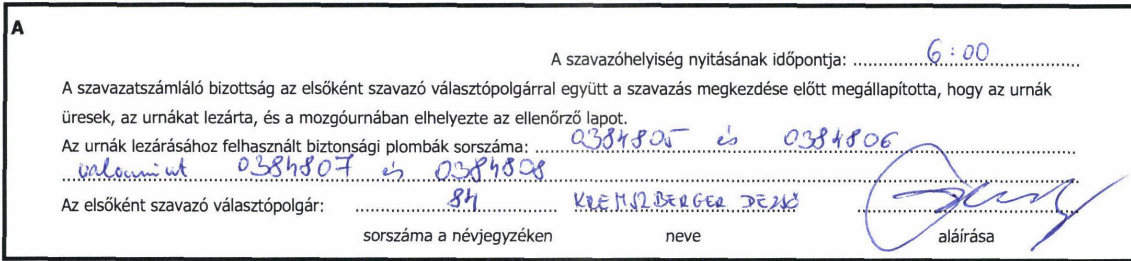 A
A szavazóhelyiség nyitásának időpontja: 6:00
A szavazatszámláló bizottság az elsőként szavazó választópolgárral együtt a szavazás megkezdése előtt megállapította, hogy az urnák
üresek, az urnákat lezárta, és a mozgóurnában elhelyezte az ellenőrző lapot.
Az urnák lezárásához felhasznált biztonsági plombák sorszáma: 0384805 és 0384806
valamint 0384807 és 0384808
Az elsőként szavazó választópolgár: 84 KREMSZBERGER DEZSŐ
sorszáma a névjegyzéken neve aláírása